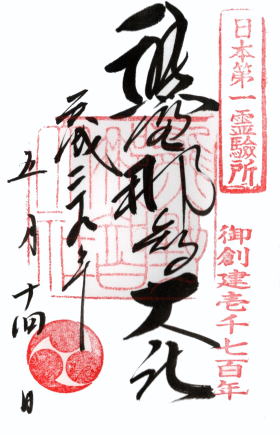 日本第一霊験所
御創建壱千七百年
熊野那智大社
平成二十九年
五月十四日